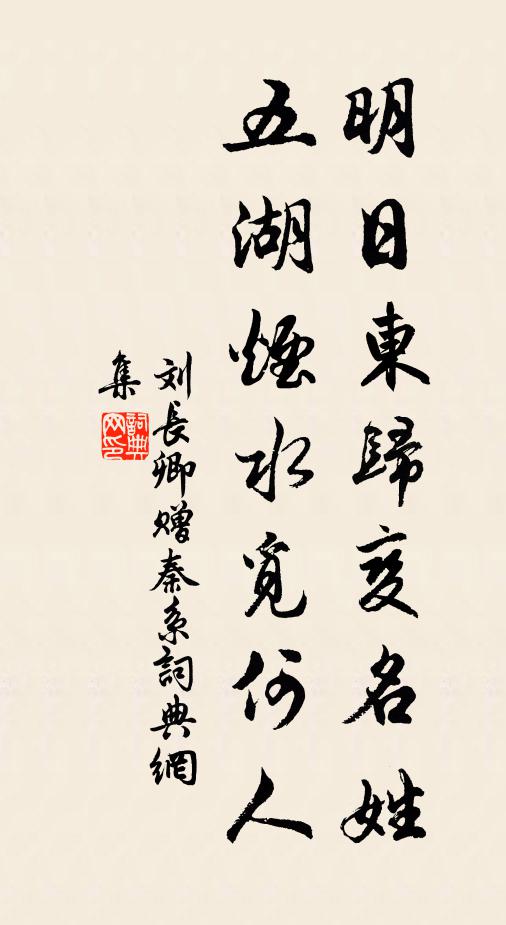 明日東歸变名姓
五湖煙水覓何人
刘長卿赠秦系詞典網
集
詞典网印